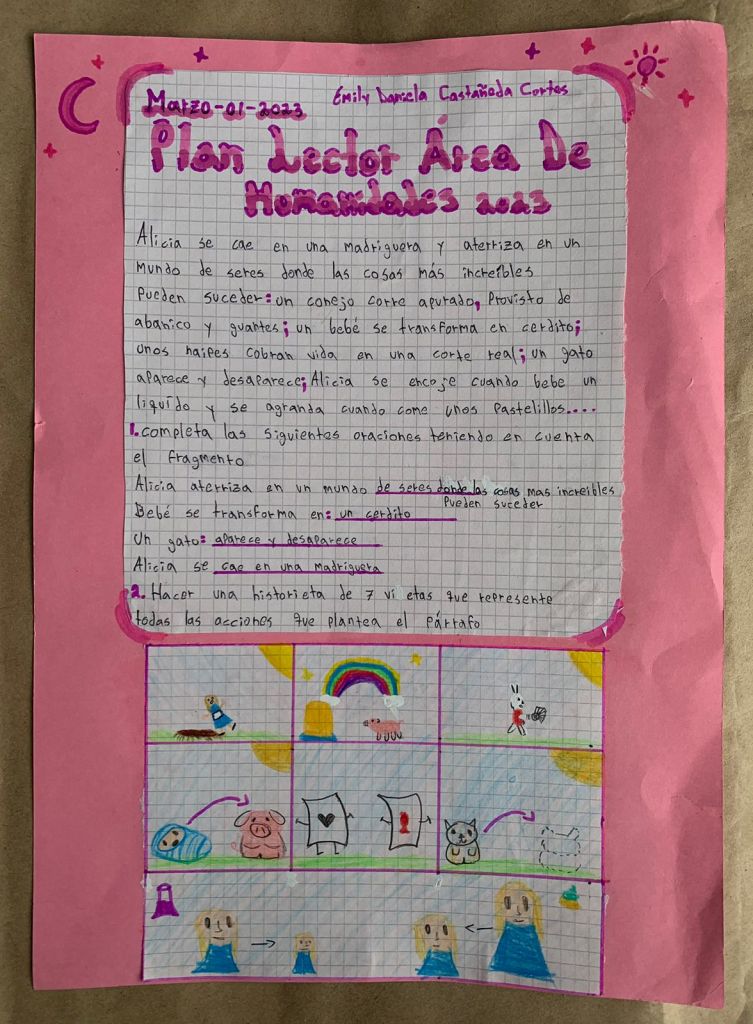 Marzo-01-2023 Emily Daniela Castañeda Cortes
Plan Lector Área De
Humanidades 2023
Alicia se cae en una madriguera y aterriza en un
mundo de seres donde las cosas más increíbles
Pueden suceder: un conejo corre apurado, Provisto de
abanico y guantes; un bebé se transforma en cerdito;
unos naipes cobran vida en una corte real; un gato
aparece y desaparece; Alicia se encoje cuando bebe un
liquído y se agranda cuando come unos Pastelillos....
1. completa las siguientes oraciones teniendo en cuenta
el fragmento
Alicia aterriza en un mundo de seres donde las cosas mas increibles
Pueden suceder
Bebé se transforma en: un cerdito
Un gato: aparece y desaparece
Alicia se cae en una madriguera
2. Hacer una historieta de 7 vi etas que represente
todas las acciones que plantea el Párrafo